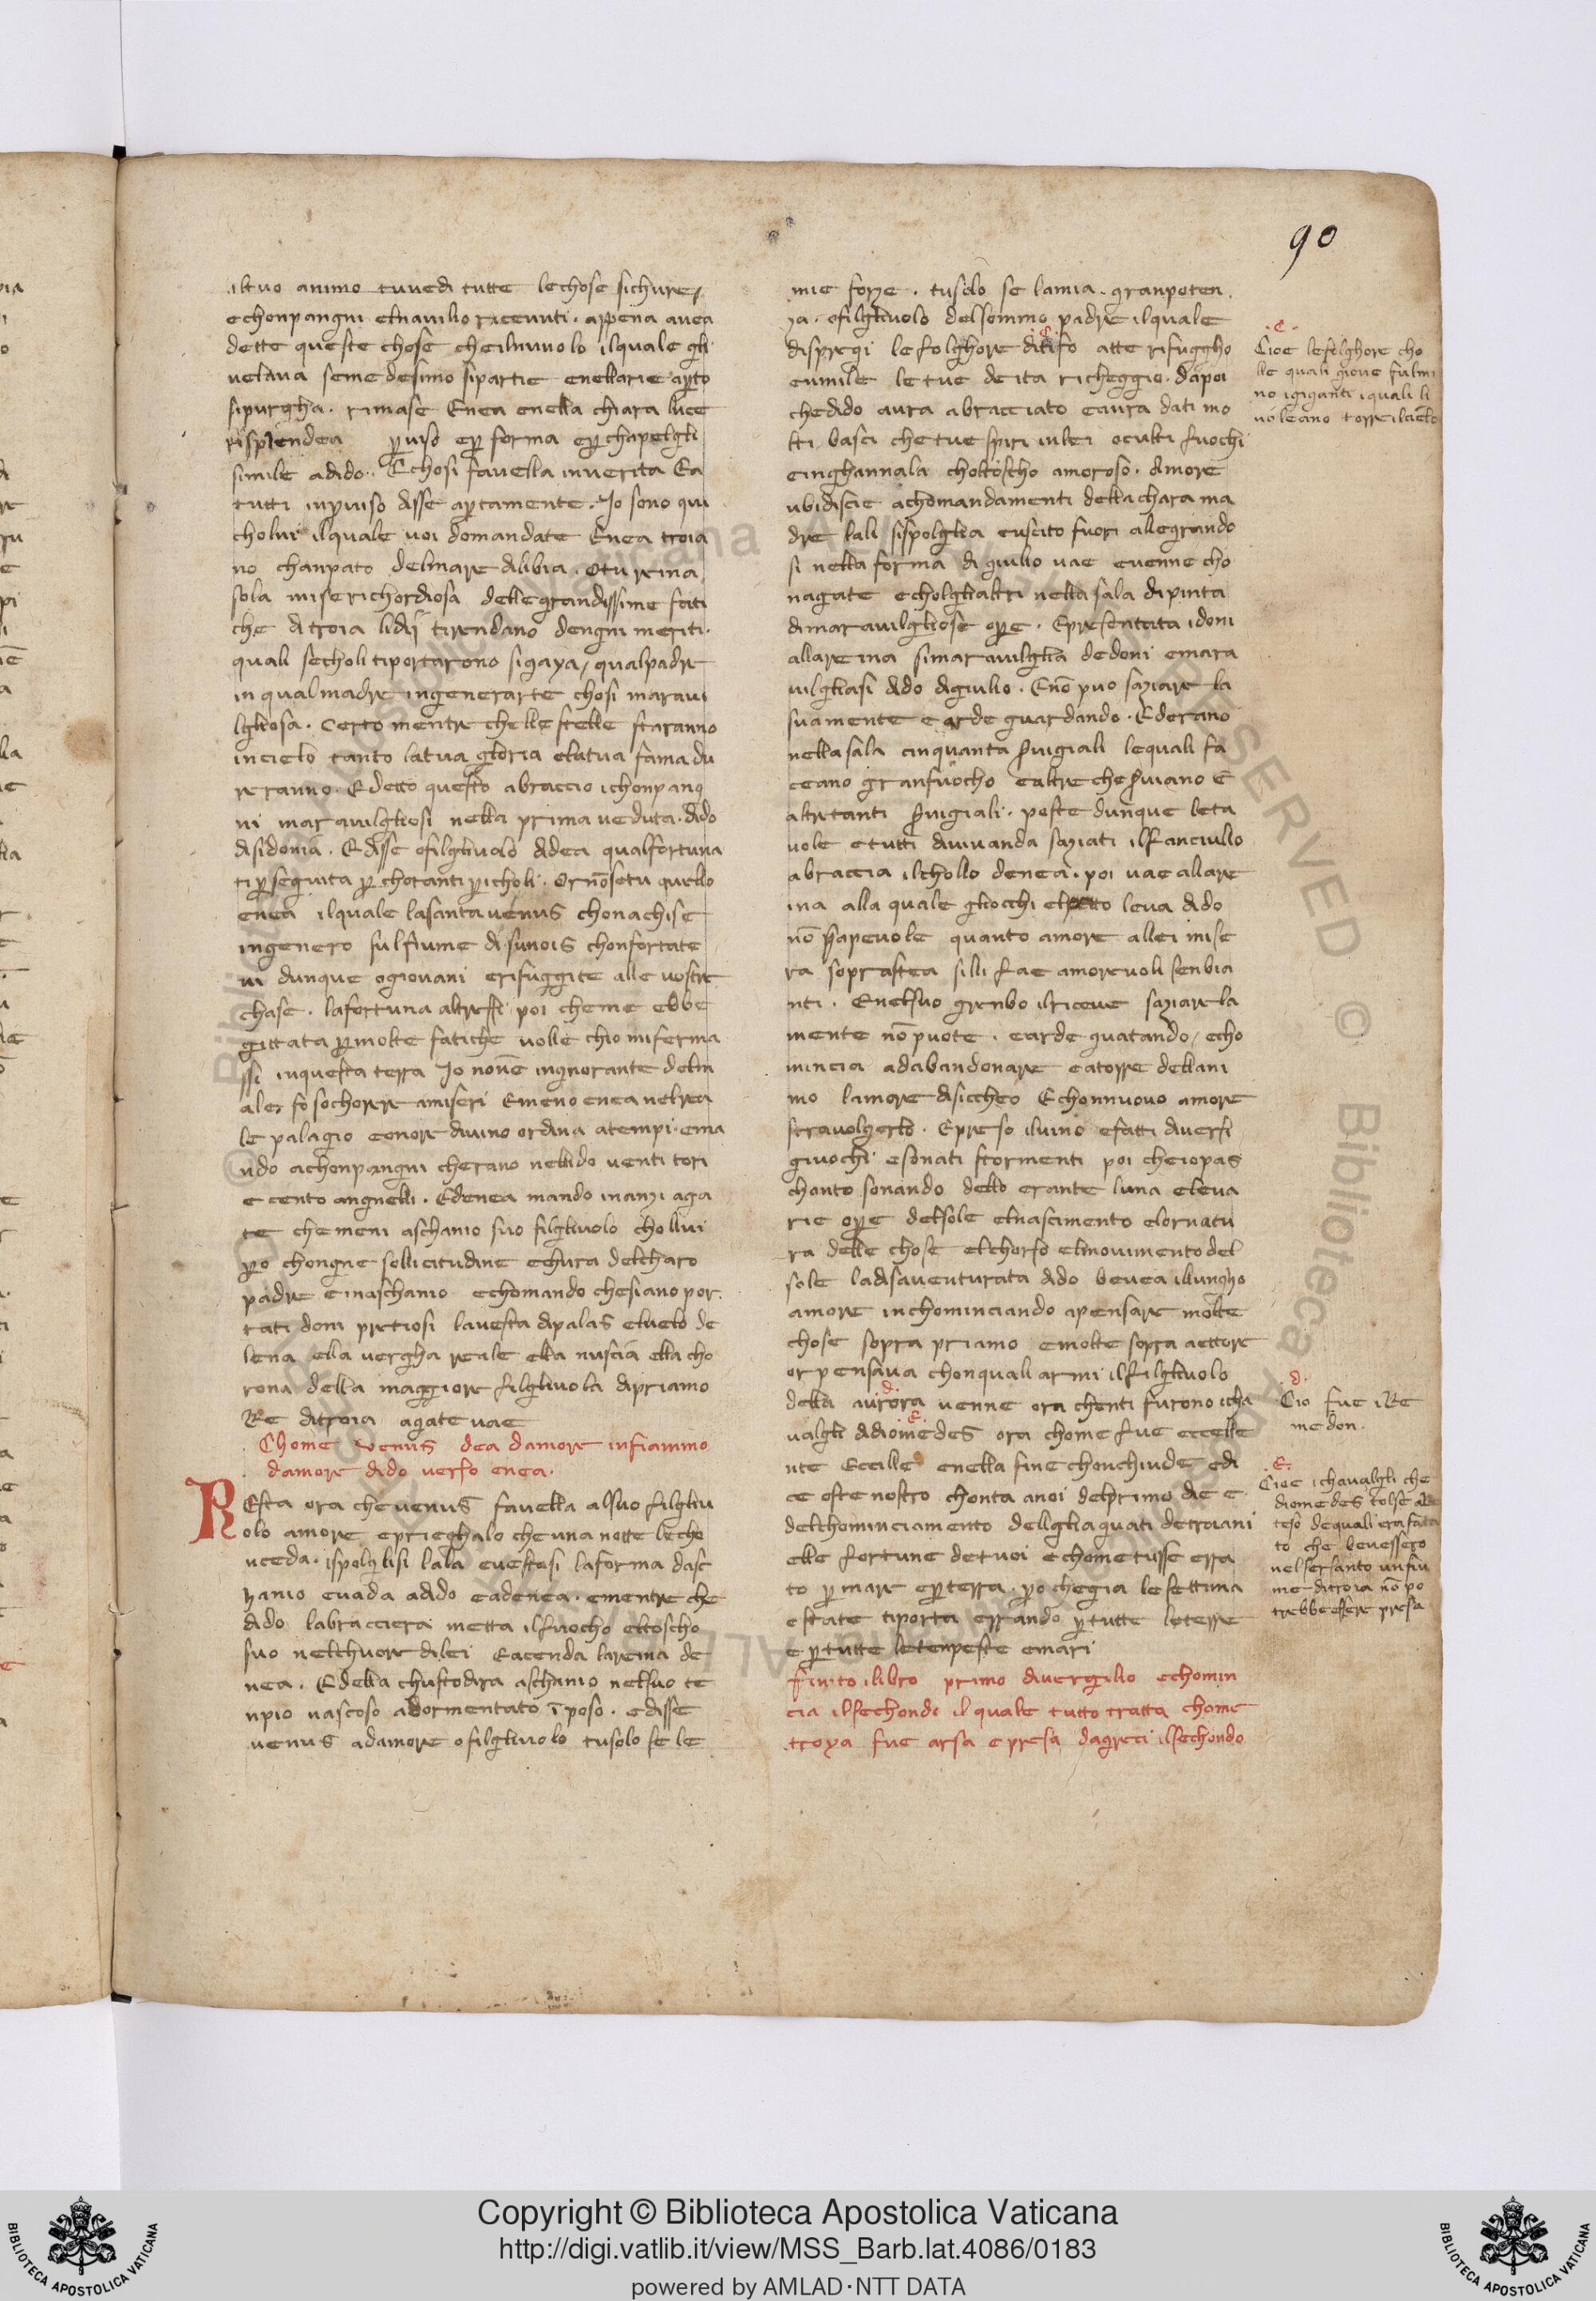 90
iltuo animo tuuedi tutte lechose sichure
echonpangni elnauilio riceuuti. appena auea
dette queste chose cheilnuuolo ilquale gli
uelaua seme desimo sipartie enellarie apto
sipurgha. rimase Enea enella chiara luce
risplendea puiso ep forma ep chapelgli
simile adido. Echosi fauella inuerita Ea
tutti inpuiso disse aptamente. Io sono qui
cholui ilquale uoi domandate Enea troia
no chanpato delmare dilibia. Otu reina
sola miserichordiosa dellegrandissime fati
che ditroia lidij tirendano dengni meriti.
quali secholi tiportarono sigaya, qualpadre
inqualmadre ingenerarte chosi maraui
lgliosa. Certo mentre chelle stelle staranno
incielo tanto latua gloria elatua fama du
reranno. Edetto questo abraccio ichonpang
ni marauilgliosi nella prima ueduta. dido
disidonia. Edisse ofilgliuolo didea qualfortuna
tipseguita p chotanti picholi. Ornōsetu quello
enea ilquale lasanta uenus chonachise
ingenero sulfiume disunois chonfortate
ui dunque ogiouani erifuggite alle uostre
chase. lafortuna altressi poi cheme ebbe
gittata pmolte fatiche uolle chio miferma
ssi inquesta terra Io nonē ingnorante delm
ale fo sochorere amiseri Emeno enea nelrea
le palagio eonore diuino ordina atempi. ema
ndo achonpangni cherano nellido uenti tori
ecento angnelli. Edenea mando inanzi aga
te chemeni aschanio suo filgliuolo chollui
po chongne sollicitudine echura delcharo
padre einaschanio echomando chesiano por
tati doni pretiosi lauesta dipalas eluelo de
lena ella uergha reale ella nuscia ella cho
rona della maggiore filgliuola dipriamo
Re ditroia agate uae
Chome venus dea damore infiammo
damore dido uerso enea.
REsta ora cheuenus fauella alsuo filgliu
olo amore eprieghalo cheuna notte lecho
nceda. ispolglisi lalia euestesi laforma dasc
hanio euada adido eadenea. ementre che
dido labracciera metta ilfuocho eltoscho
suo nelchuore dilei Eacenda lareina de
nea. Edella chustodira aschanio nelsuo te
npio nascoso adormentato ī poso. edisse
uenus adamore ofilgliuolo tusolo se le
mie forze. tusolo se lamia granpoten
za. ofilgliuolo delsommo padre ilquale
dispregi lefolghore ditifo atte rifuggho
eumile letue deita richeggio. dapoi
chedido aura abracciato eaura dati mo
lti basci chetue spiri inlei oculti fuochi
einghannala choltoscho amoroso. Amore
ubidiscie achomandamenti della chara ma
dre lali sispolglia euscito fuori allegrando
si nella forma di giulio uae euenne cho
nagate echolglialtri nella sala dipinta
dimarauilgliose ope. Epresentata idoni
allareina simarauilglia dedoni emara
uilgliasi dido digiulio. Enō puo saziare la
suamente earde guardando. Ederano
nella sala cinquanta suigiali lequali fa
ceano granfuocho ealtreche suiano E
altretanti suigiali. poste dunque leta
uole etutti diuiuanda saziati ilfanciullo
abraccia ilchollo denea. poi uae allare
ina alla quale gliocchi elpetto leua dido
nō sapeuole quanto amore allei mise
ra soprastea silli fae amoreuoli senbia
nti. Enelsuo grenbo ilriceue saziarela
mente nō puote. earde guatando, echo
mincia adabandonare eatorre dellani
mo lamore disiccheo Echonnuouo amore
strauolgerlo. Epreso iluino efatti diuersi
giuochi esonati stormenti poi cheiopas
chanto sonando dello erante luna eleua
rie ope delsole elnascimento elornatu
ra delle chose elchorso elmouimento del
sole ladisauenturata dido beuea illungho
amore inchominciando apensare molte
chose sopra priamo emolte sopra aettore
orpensaua chonquali armi ilfilgliuolo
della aurora uenne ora chenti furono icha
ualgli didiomedes ora chome fue eccelle
nte Eccille enella fine chonchiude edi
ce oste nostro chonta anoi delprimo die e
delchominciamento dellgliaguati detroiani
elle fortune detuoi echome tusse erra
to p mare epterra. po chegia lesettima
estate tiporta errando ptutte leterre
eptutte letenpeste emari
finito ilibro primo diuergilio echomin
cia ilsechondo ilquale tutto tratta chome
troya fue arsa epresa dagreci ilsechondo
.c.
Cioe lefolghore cho
lle quali gioue fulmi
no igiganti iquali li
uoleano torre ilcielo
.d.
Cio fue iRe
medon.
.E.
Cioe ichaualgli che
diomedes tolse
teso dequali era fata
to che beuessero
nelsersanto unfiu
me ditroia nō po
trebbe essere presa
Copyright © Biblioteca Apostolica Vaticana
http://digi.vatlib.it/view/MSS_Barb.lat.4086/0183
powered by AMLAD·NTT DATA
BIBLIOTECA APOSTOLICA VATICANA
BIBLIOTECA APOSTOLICA VATICANA